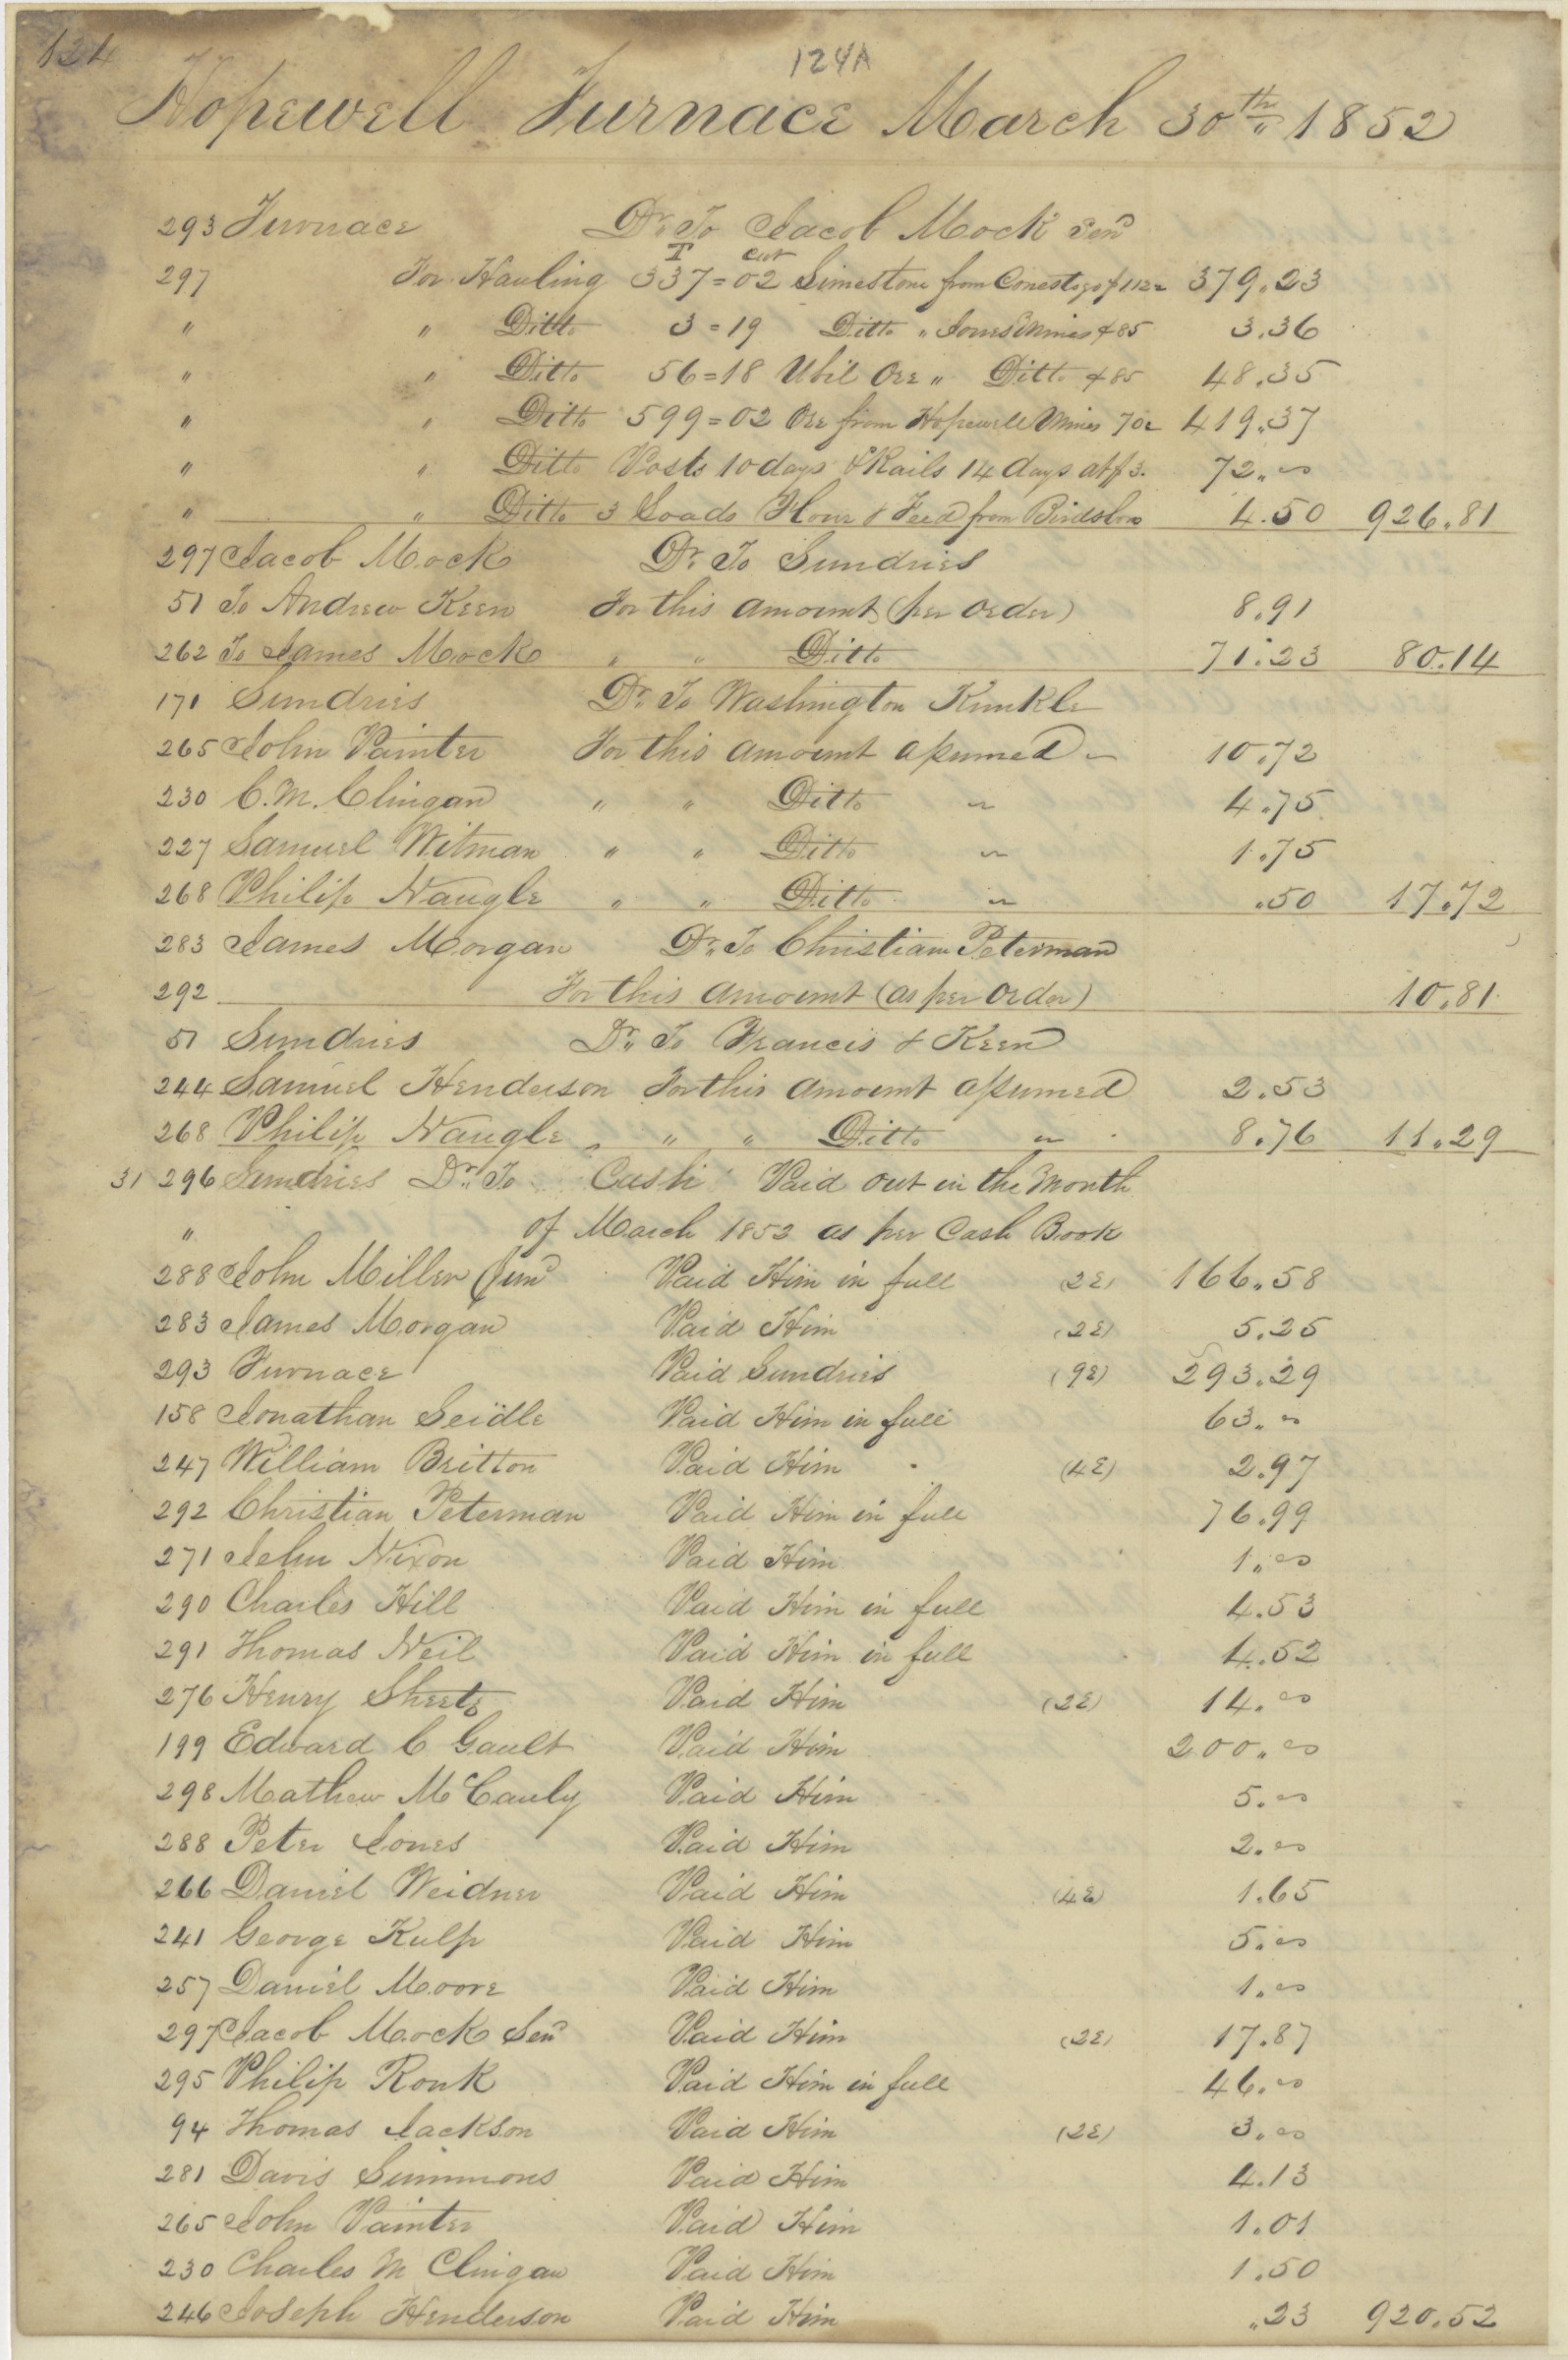 124
124A
Hopewell Furnace March 30th 1852
293 Furnace Dr. To Jacob Mock Senr
T cwt
297 For Hauling 337=02 Limestone from Conestogo @ 1.12½ 379.23
" " Ditto 3=19 Ditto " Jones Mines @ 85 3.36
" " Ditto 56=18 Ore " Ditto @ 85 48.35
" " Ditto 599=02 Ore from Hopewell Mines 70c 419.37
" " Ditto Posts 10 days & Rails 14 days at $3. 72.00
" " Ditto 3 Loads Flour & Feed from Birdsboro 4.50 926.81
297 Jacob Mock Dr. To Sundries
51 To Andrew Keen For this amount (per order) 8.91
262 To James Mock " " Ditto 71.23 80.14
171 Sundries Dr. To Washington Kunkle
265 John Painter For this amount assumed ~ 10.72
230 C. M. Clingan " " Ditto ~ 4.75
227 Samuel Witman " " Ditto ~ 1.75
268 Philip Naugle " " Ditto ~ .50 17.72
283 James Morgan Dr. To Christian Peterman
292 For this amount (as per order) 10.81
51 Sundries Dr. To Francis & Keen
244 Samuel Henderson For this amount assumed 2.53
268 Philip Naugle " " " Ditto ~ 8.76 11.29
31 296 Sundries Dr. To Cash Paid out in the Month
" of March 1852 as per Cash Book
288 John Miller Junr Paid Him in full (2E) 166.58
283 James Morgan Paid Him (2E) 5.25
293 Furnace Paid Sundries (9E) 293.29
158 Jonathan Seidle Paid Him in full 63.00
247 William Britton Paid Him (4E) 2.97
292 Christian Peterman Paid Him in full 76.99
271 John Nixon Paid Him 1.00
290 Charles Hill Paid Him in full 4.53
291 Thomas Neil Paid Him in full 4.52
276 Henry Sheetz Paid Him (2E) 14.00
199 Edward C Gault Paid Him 200.00
298 Mathew McCauly Paid Him 5.00
288 Peter Jones Paid Him 2.00
266 Daniel Weidner Paid Him (4E) 1.65
241 George Kulp Paid Him 5.00
257 Daniel Moore Paid Him 1.00
297 Jacob Mock Senr Paid Him (2E) 17.87
295 Philip Ronk Paid Him in full 46.00
94 Thomas Jackson Paid Him (2E) 3.00
281 Davis Simmons Paid Him 4.13
265 John Painter Paid Him 1.01
230 Charles M Clingan Paid Him 1.50
246 Joseph Henderson Paid Him .23 920.52